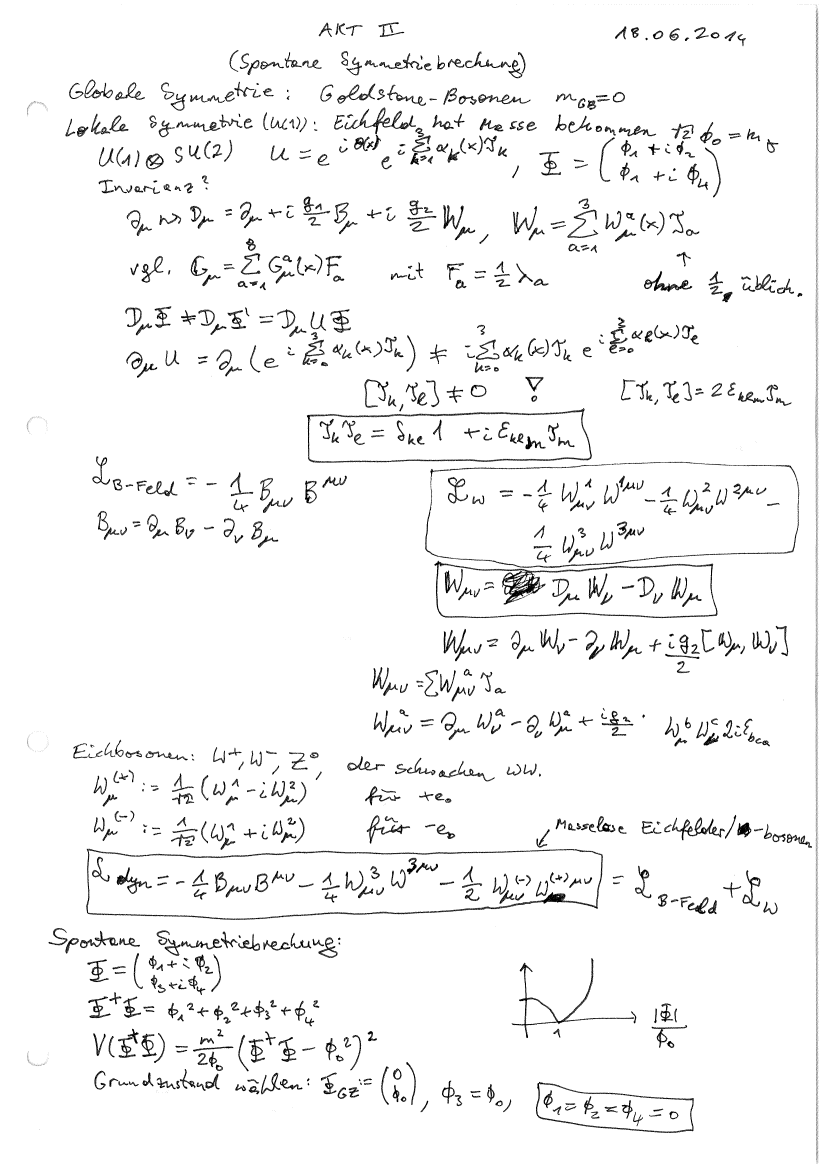 AKT II 18.06.2014
(Spontane Symmetriebrechung)
Globale Symmetrie: Goldstone-Bosonen m_GB = 0
Lokale Symmetrie (U(1)): Eichfeld hat Masse bekommen √2 ϕ₀ = m
U(1) ⊗ SU(2) U = e^{iΘ(x)} e^{i Σ_{k=1}^{3} α_k(x) τ_k}, Φ = (ϕ₁ + iϕ₂ / ϕ₁ + iϕ₄)
Invarianz?
∂_μ ⇝ D_μ = ∂_μ + i g₁/2 B_μ + i g₂/2 W_μ, W_μ = Σ_{a=1}^{3} W_μ^a(x) τ_a
vgl. G_μ = Σ_{a=1}^{8} G_μ^a(x) F_a mit F_a = 1/2 λ_a ↑ ohne 1/2, üblich.
D_μ Φ ≠ D_μ Φ' = D_μ U Φ
∂_μ U = ∂_μ (e^{i Σ_{k=0}^{3} α_k(x) τ_k}) ≠ i Σ_{k=0}^{3} α_k(x) τ_k e^{i Σ_{l=0}^{3} α_l(x) τ_l}
[τ_k, τ_l] ≠ 0 ! [τ_k, τ_l] = 2 ε_{klm} τ_m
τ_k τ_l = δ_{kl} 1 + i ε_{klm} τ_m
ℒ_{B-Feld} = - 1/4 B_{μν} B^{μν}
B_{μν} = ∂_μ B_ν - ∂_ν B_μ
ℒ_W = - 1/4 W^1_{μν} W^{1μν} - 1/4 W^2_{μν} W^{2μν} -
1/4 W^3_{μν} W^{3μν}
W_{μν} = D_μ W_ν - D_ν W_μ
W_{μν} = ∂_μ W_ν - ∂_ν W_μ + i g₂/2 [W_μ, W_ν]
W_{μν} = Σ W^a_{μν} τ_a
W^a_{μν} = ∂_μ W^a_ν - ∂_ν W^a_μ + i g₂/2 · W^b_μ W^c_ν 2i ε_{bca}
Eichbosonen: W⁺, W⁻, Z⁰, der schwachen WW.
W_μ^{(+)} := 1/√2 (W^1_μ - i W^2_μ) für +e₀
W_μ^{(-)} := 1/√2 (W^1_μ + i W^2_μ) für -e₀
↙ Masselose Eichfelder/-bosonen
ℒ_dyn = - 1/4 B_{μν} B^{μν} - 1/4 W^3_{μν} W^{3μν} - 1/2 W^{(-)}_{μν} W^{(+)μν} = ℒ_{B-Feld} + ℒ_W
Spontane Symmetriebrechung:
Φ = (ϕ₁ + iϕ₂ / ϕ₃ + iϕ₄)
Φ⁺Φ = ϕ₁² + ϕ₂² + ϕ₃² + ϕ₄²
V(Φ⁺Φ) = m²/2ϕ₀ (Φ⁺Φ - ϕ₀²)²
1 |Φ|/ϕ₀
Grundzustand wählen: Φ_GZ := (0 / ϕ₀), ϕ₃ = ϕ₀, ϕ₁ = ϕ₂ = ϕ₄ = 0